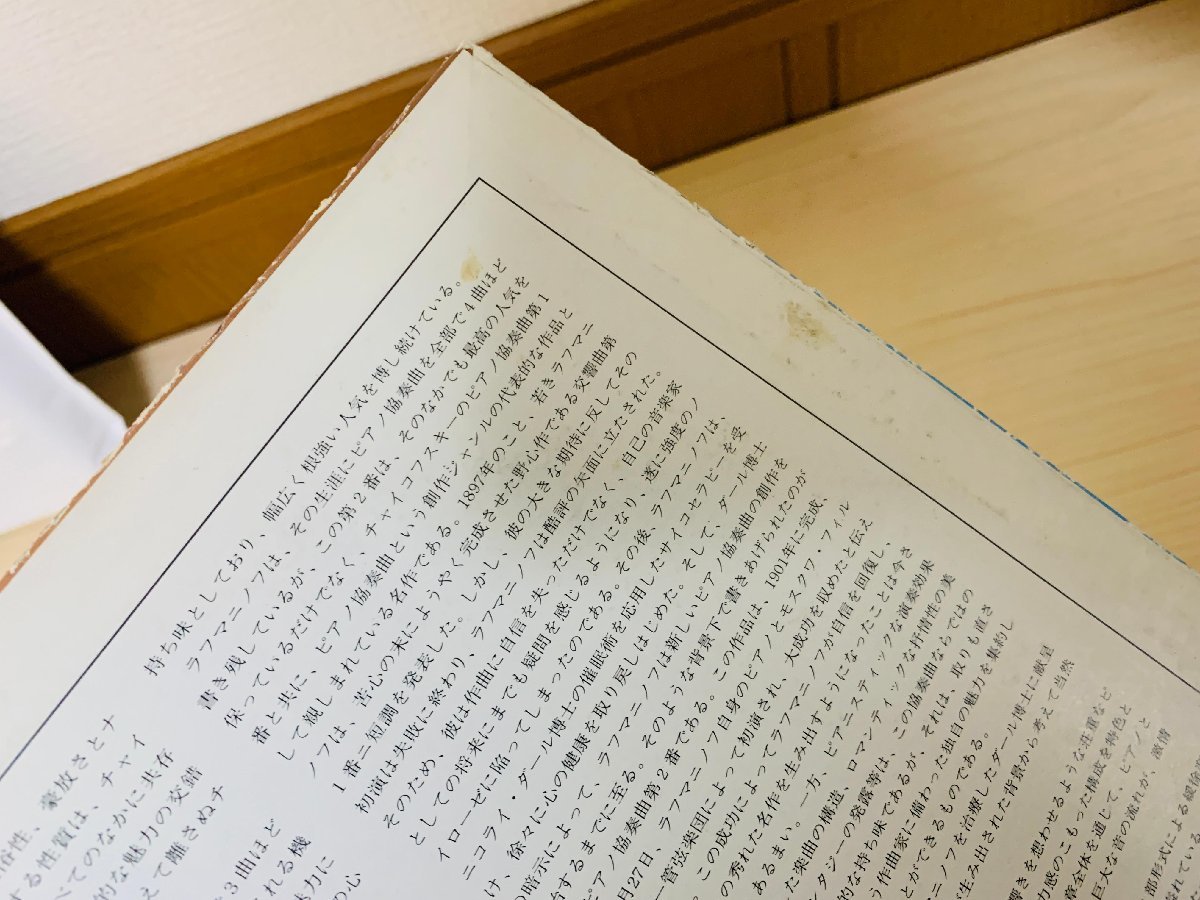 持ち味としており、幅広く根強い人気を博し続けている。
ラフマニノフは、その生涯にピアノ協奏曲を全部で4曲ほど
書き残しているが、この第2番は、そのなかでも最高の人気を
保っているだけでなく、チャイコフスキーのピアノ協奏曲第1
番と共に、ピアノ協奏曲という創作ジャンルの代表的な作品と
して親しまれている名作である。1897年のこと、若きラフマニ
ノフは、苦心の末にようやく完成させた野心作である交響曲第
1番ニ短調を発表した。しかし、彼の大きな期待に反してその
初演は失敗に終わり、ラフマニノフは酷評の矢面に立たされた。
そのため、彼は作曲に自信を失っただけでなく、自己の音楽家
としての将来にまでも疑問を感じるようになり、遂に強度のノ
イローゼに陥ってしまったのである。その後、ラフマニノフは、
ニコライ・ダール博士の催眠術を応用したサイコセラピーを受
け、徐々に心の健康を取り戻しはじめた。そして、ダール博士
の暗示によって、ラフマニノフは新しいピアノ協奏曲の創作を
するまでに至る。そのような背景下で書きあげられたのが
ピアノ協奏曲第2番である。この作品は、1901年に完成、
月27日、ラフマニノフ自身のピアノとモスクワ・フィル
ー管弦楽団によって初演され、大成功を収めたと伝え
この成功によってラフマニノフが自信を回復し、
の秀れた名作を生み出すようになったことは今さ
あるまい。一方、ピアニスティックな演奏効果
た楽曲の構造、ロマンティックな抒情性の美
ンタジーの発露等は、この協奏曲ならではの
的な持ち味であるが、それは、取りも直さ
う作曲家に備わった独自の魅力を集約し
とができるものである。
マニノフを治療したダール博士に献呈
が生み出された背景から考えて当然
響きを想わせるような荘重など
力感のこもった構成を特色と
章全体を通じて、ピアノと
巨大な音の流れが、激情
部形式による
俗性、豪放さとナ
する性質は、チャイ
べてのなかに共存
的な魅力の交錯
えて離さぬチ
3曲ほど
れる機
力に
の心